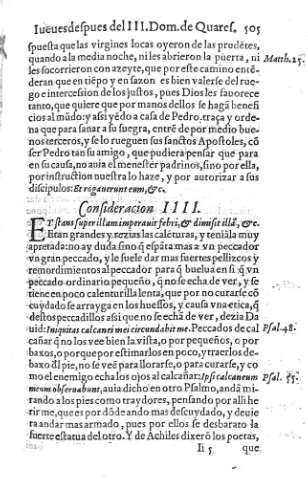 Iueues despues del III. Dom. de Quares. 505
spuesta que las virgines locas oyeron de las prudẽtes,
quando a la media noche, ni les abrieron la puerta, ni Matth. 25.
les socorrieron con azeyte, que por este camino entẽ-
deran que en tiẽpo y en sazon es bien valerse del rue-
go e intercession de los justos, pues Dios les fauorece
tanto, que quiere que por manos dellos se hagã benefi
cios al mũdo: y assi yẽdo a casa de Pedro. traça y orde-
na que para sanar a su suegra, entrẽ de por medio bue-
nos terceros, y se lo rueguen sus sanctos Apostoles, cõ
ser Pedro tan su amigo, que pudiera pensar que para
en su causa, no auia el menester padrinos, sino por ella,
por instruction nuestra lo haze, y por autorizar a sus
discipulos: Et rogauerunt eum, &c.
Consideracion IIII.
ET stans super illam imperauit febri, & dimisit illã, &c.
Eran grandes y rezias las calẽturas, y teniãla muy
apretada: no ay duda sino q̃ espãta mas a vn peccador
vn gran peccado, y le suele dar mas fuertes pellizcos y
remordimientos al peccador para q̃ buelua en si q̃ vn
peccado ordinario pequeño, q̃ no se echa de ver, y se
tiene en poco calentura lenta, que por no curarse cõ
cuydado se arrayga en los huessos, y causa vna etica, q̃
destos peccadillos assi que no se echã de ver, dezia Da
uid: Iniquitas calcanei mei circundabit me. Peccados de cal Psal. 48.
cañar q̃ no los vee bien la vista, o por pequeños, o por
baxos, o porque por estimarlos en poco, y traerlos de-
baxo dl pie, no se veẽ para llorarse, o para curarse, y co
mo el enemigo echa los ojos al calcañar: Ipsi calcaneum Psal. 55.
meum obseruabunt, auia dicho en otro Psalmo, andã mi-
rando a los pies como traydores, pensando por alli he
rirme, que es por dõde ando mas descuydado, y deuie
ra andar mas armado, pues por ellos se desbarato la
fuerte estatua del otro. Y de Achiles dixerõ los poetas,
Ii 5 que